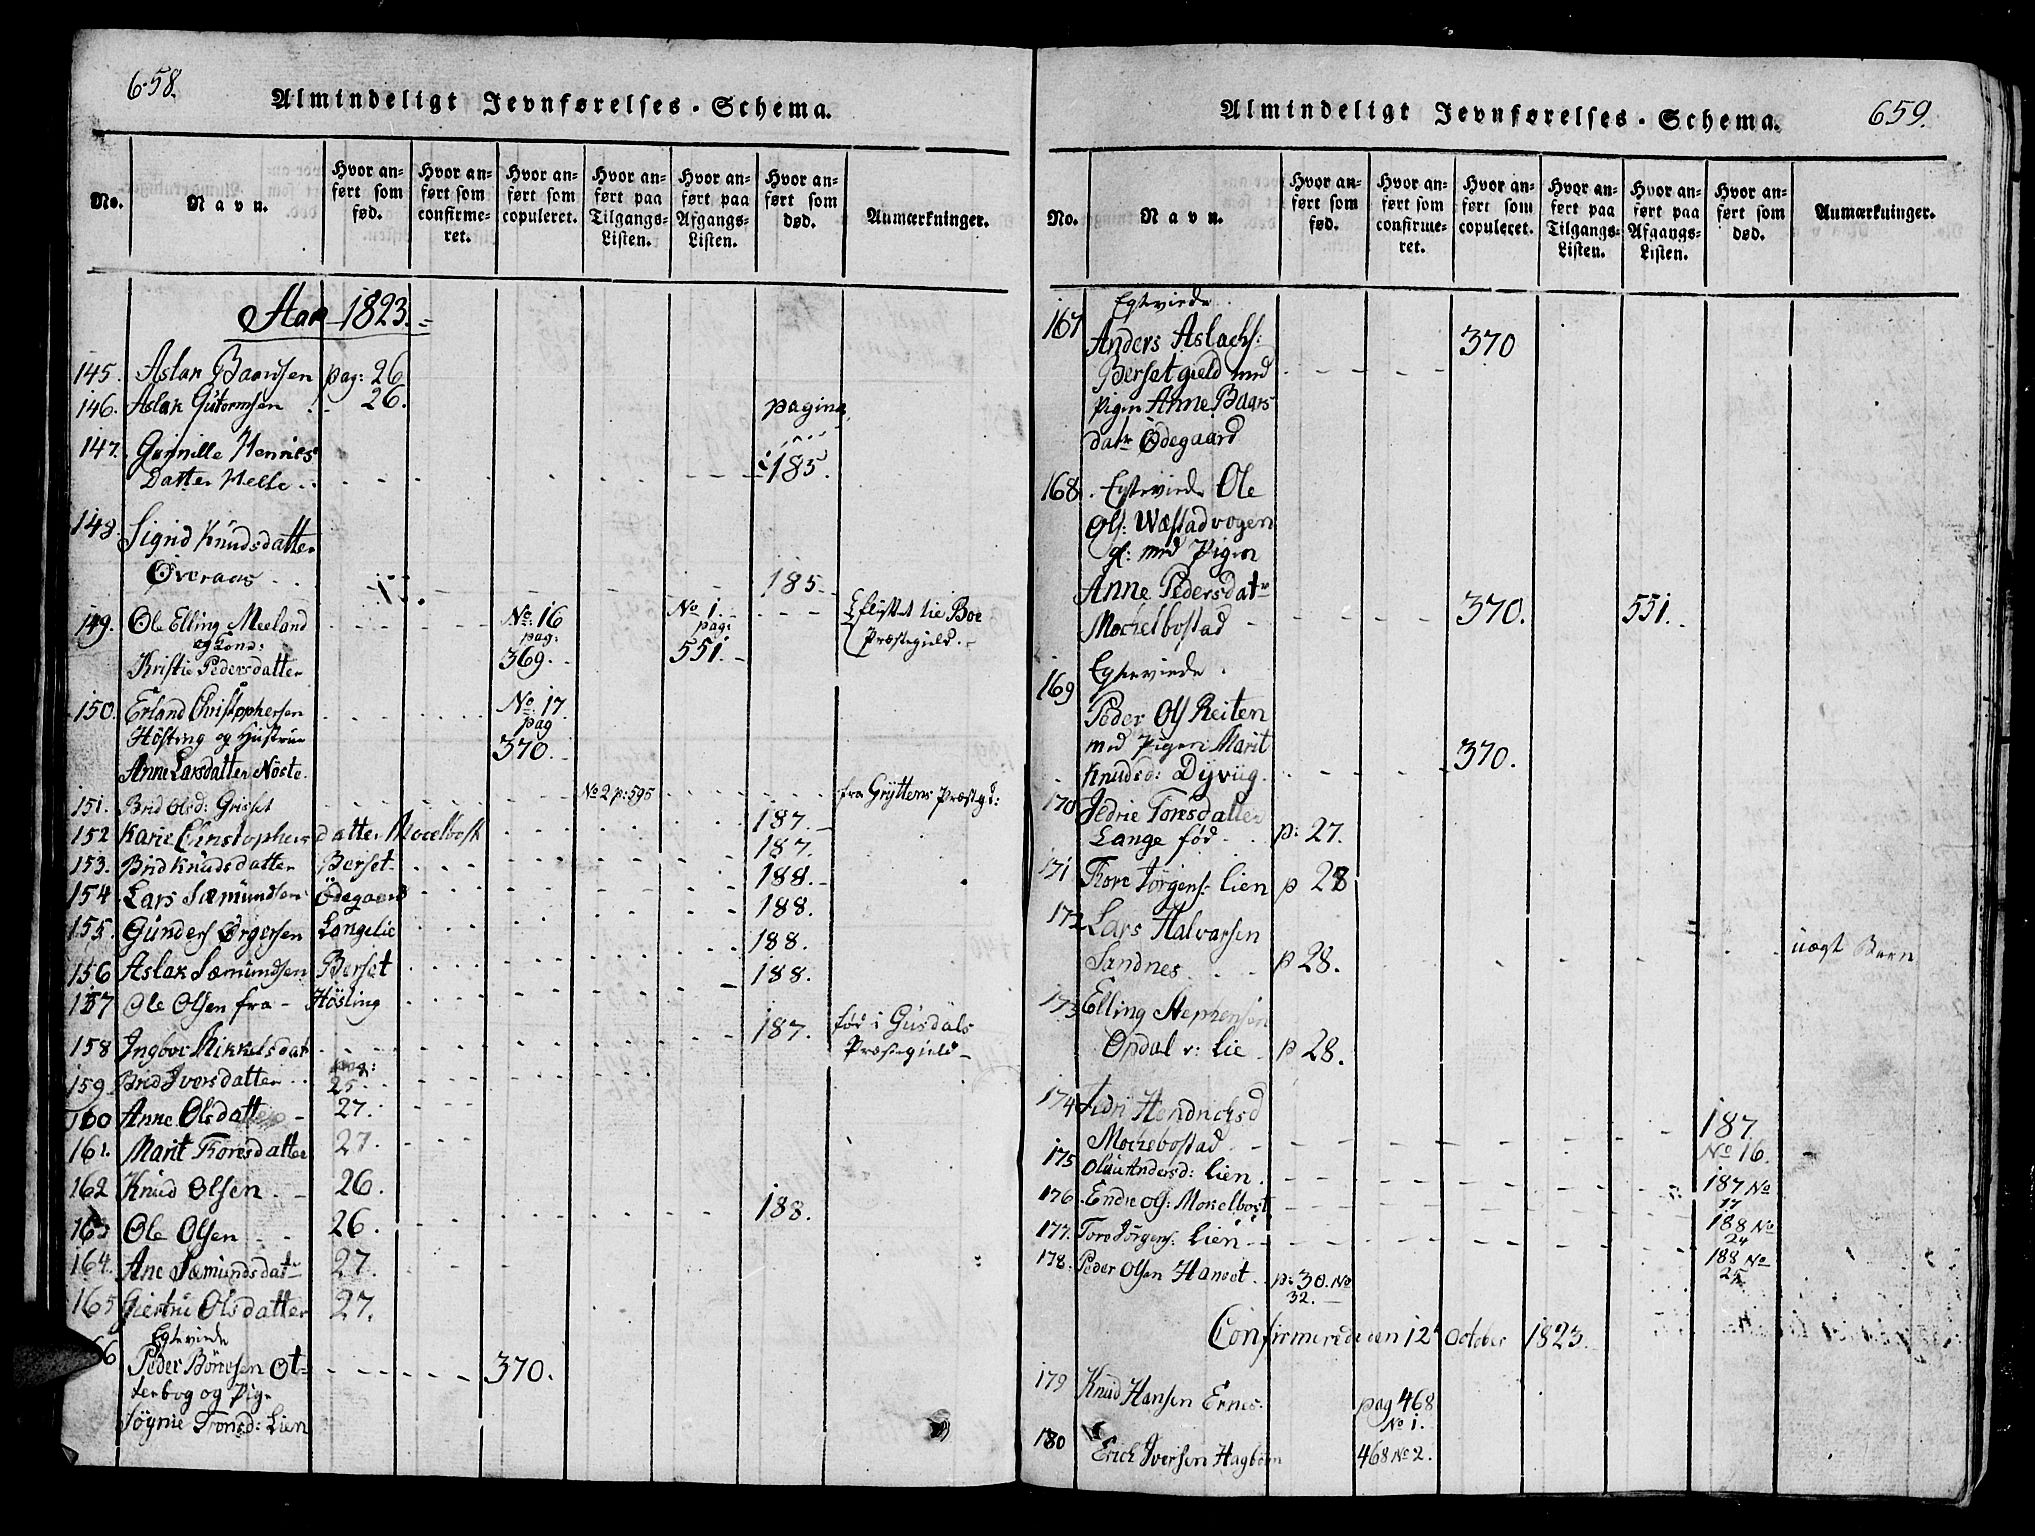 658.
Almindeligt Jevnførelses-Schema.
No.
Navn.
Hvor anført som fød.
Hvor anført som confirmeret.
Hvor anført som copuleret.
Hvor anført paa Tilgangs-Listen.
Hvor anført paa Afgangs-Listen.
Hvor anført som død.
Anmærkninger.
Aar 1823.
145. Aslak Baardsen pag: 26
146. Aslak Gutormsen 26. pagina
147. Gunnille Hennies
Datter Helle 185.
148. Sigrid Knudsdatter
Øveraas 185
149. Ole Elling Meeland No. 16 No 1. flyttet til Boe
og Kond: pag: pag: Præstegield.
Kristie Pedersdatter 369. 551.
150. Erland Christophersen No. 17.
Høsting og Hustrue pag 370.
Anne Larsdatter Nöste.
151. Brid Olsd: Griset No 2 p: 595 fra Gryttens Præstegd:
152 Karie Christophersdatter Mocelbost 187.
153. Brid Knudsdatter Berset 187.
154 Lars Sæmundsen Ödegaard 188.
155. Gunders Örgersen Langelie 188.
156 Aslak Sæmundsen Berset 188.
157 Ole Olsen fra Høsling 188.
158 Ingbor Mikkelsdat 187. fød i Gusdals
Præstegield
159. Brid Iversdatter pag: 25.
160 Anne Olsdatter 27.
161. Marit Toresdatter 27.
162 Knud Olsen 26.
163 Ole Olsen 26. 188.
164. Ane Sæmundsdatr 27.
165 Giertru Olsdatter 27.
166 Egtevirde
Peder Börresen Ot-
terbog og Pige 370.
Søgnie Tronsd: Lien
659.
Almindeligt Jevnførelses-Schema.
No.
Navn.
Hvor anført som fød.
Hvor anført som confirmeret.
Hvor anført som copuleret.
Hvor anført paa Tilgangs-Listen.
Hvor anført paa Afgangs-Listen.
Hvor anført som død.
Anmærkninger.
167 Egtevirde
Anders Aslachs: 370
Bersetgield med
Pigen Anne Baars
datr Ödegaard
168. Egtevirde Ole
Ols: Wæstadvogen
gl: med Pigen
Anne Pedersdatr
Mochelbostad 370. 551.
169 Egtevirde
Peder Ols Reiten
med Pigen Marit 370.
Knudsd: Dyvüg.
170 Jedrie Toresdatter
Lange fød p: 27.
171 Tore Jörgens: Lien p 28
172 Lars Halvarsen
Sandnes p 28. uægt Barn
173 Elling Stephensen
Opdal v: Lie p 28.
174 Jedri Hendrichsd
Mochebostad 187 No 16.
175 Olau Andersd: Lien. 187 No 17
176. Endre Ols: Mokelbost 188 No 24
177. Tore Jörgens: Lien 188 No 25
178. Peder Olsen Hanset p: 30. No 32.
Confirmerede den 12t October 1823.
179 Knud Hansen Ernes. pag 468 No 1.
180 Erich Iversen Hagbøen 468 No 2.